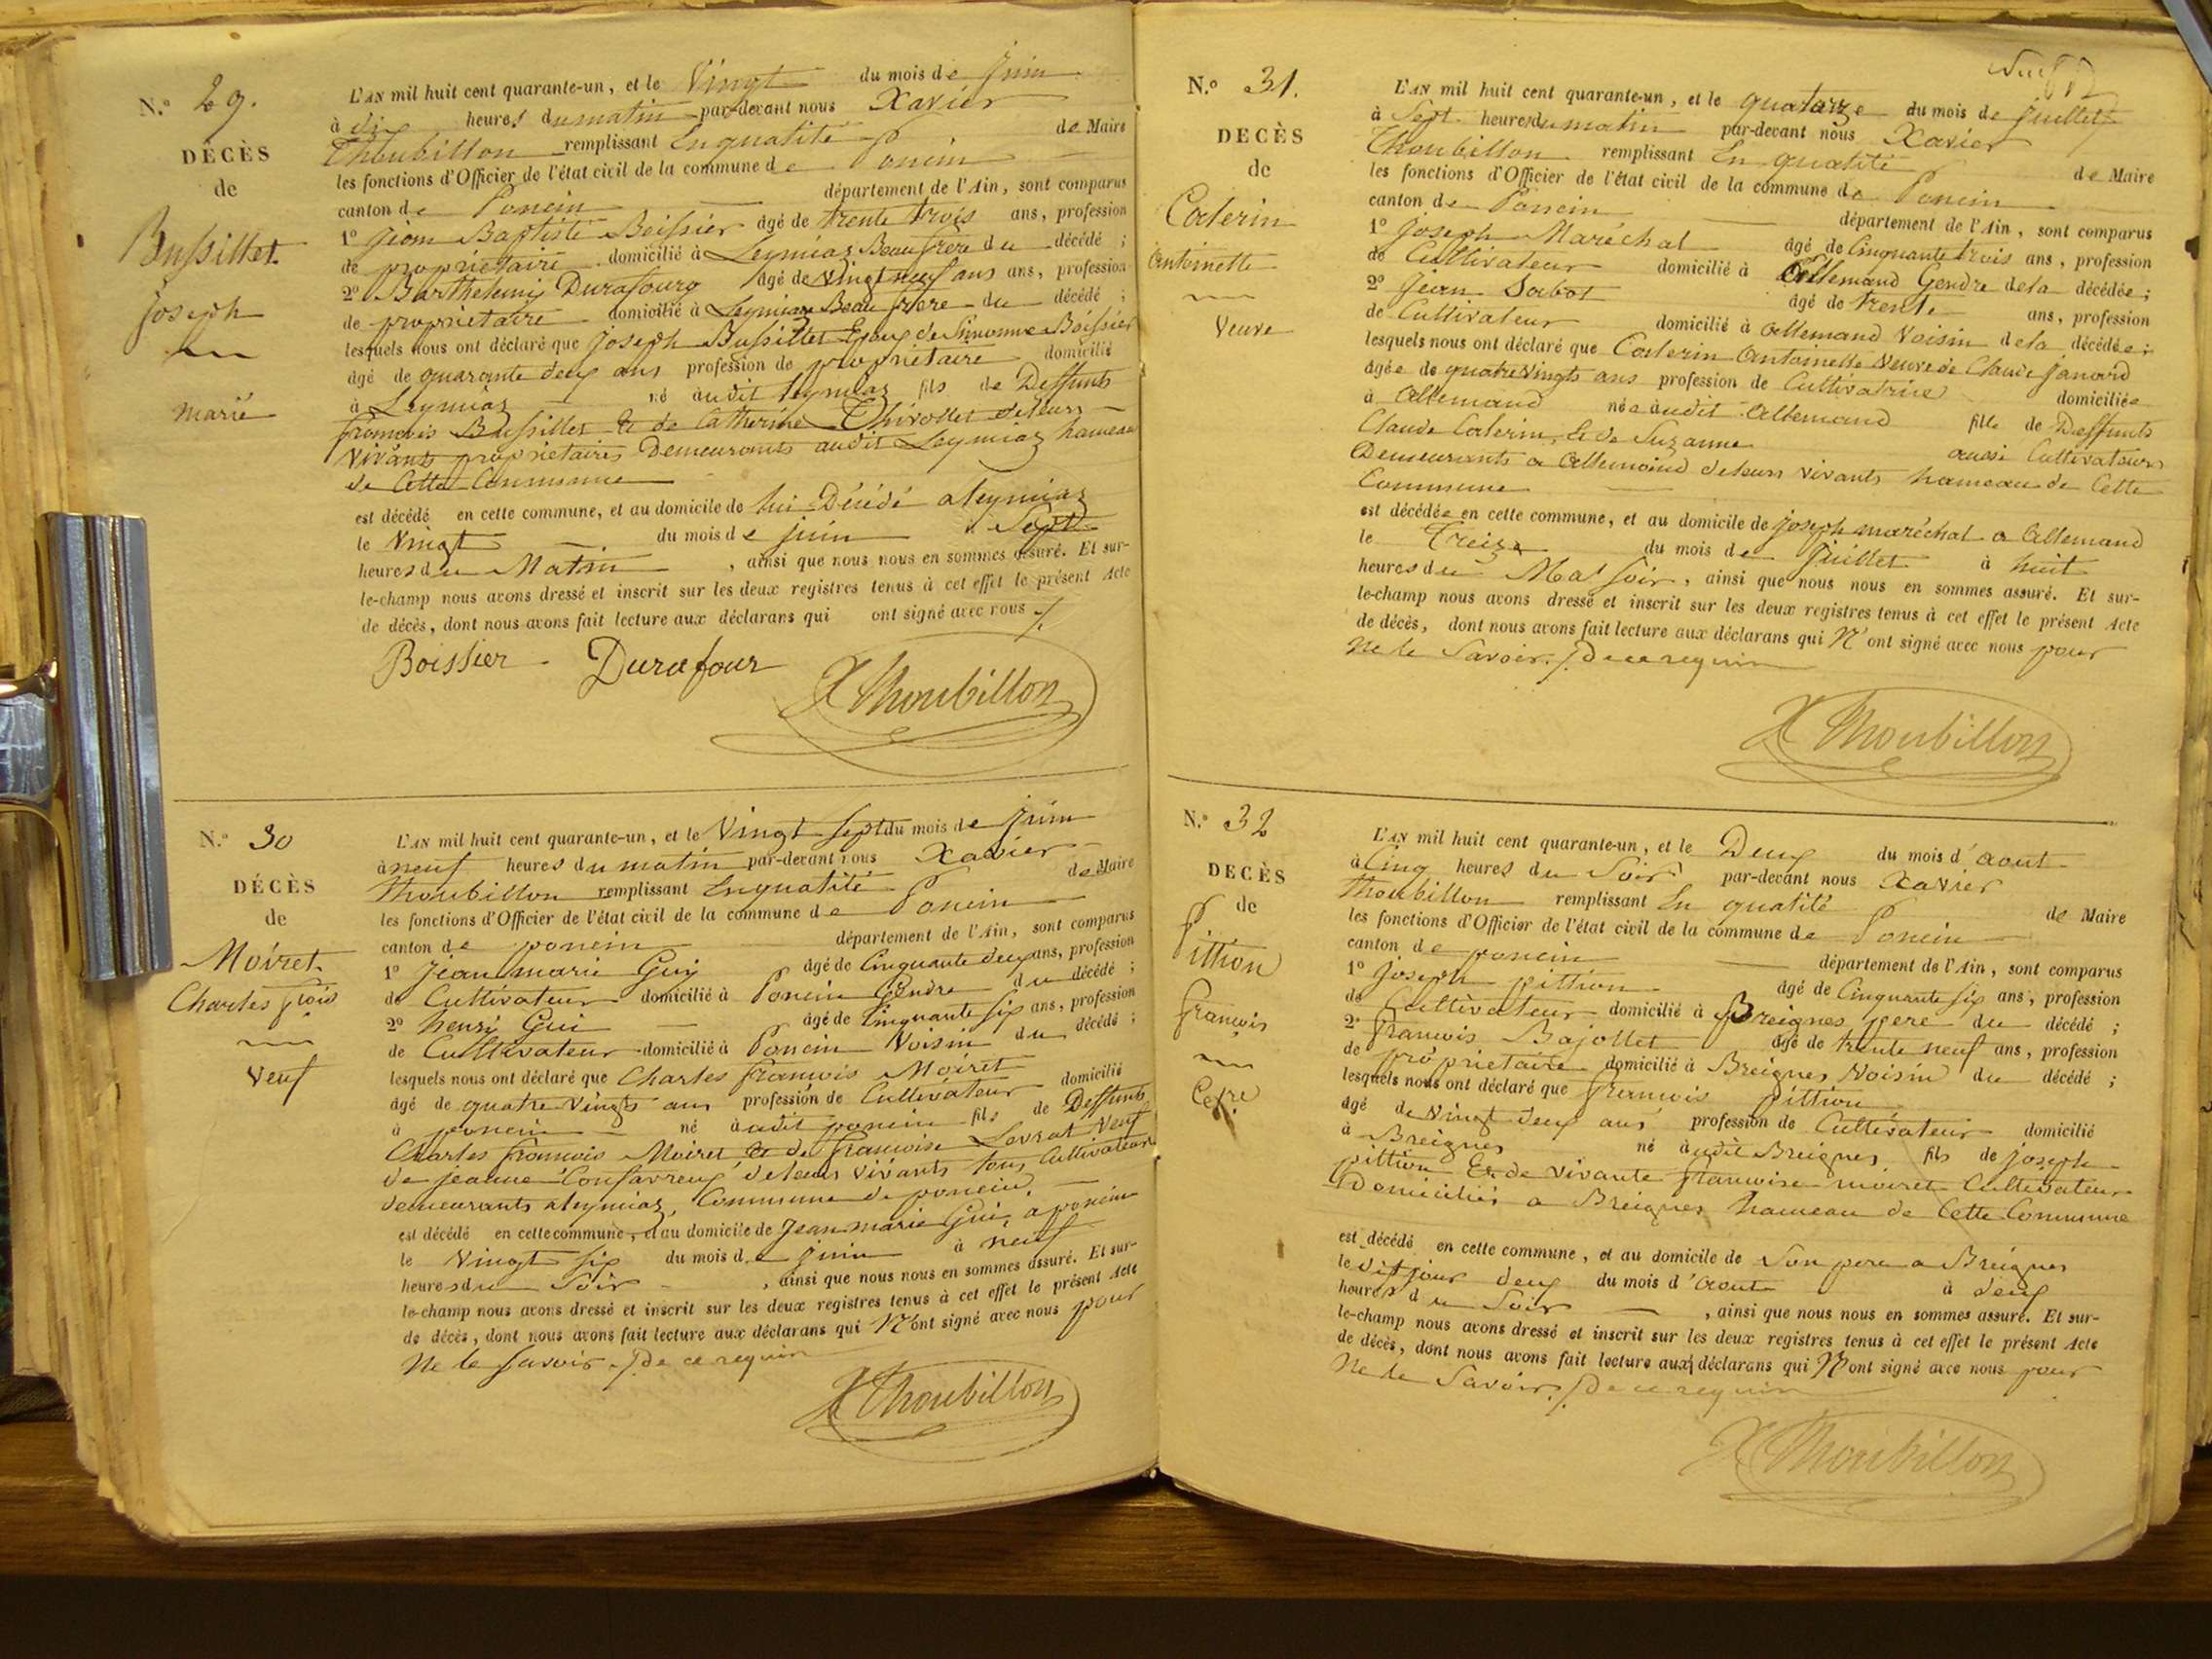 N.º 29.
DÉCÈS
de
Bussillet
Joseph
marié
L'AN mil huit cent quarante-un, et le Vingt du mois de Juin
à dix heures du matin par-devant nous Xavier
Thoubillon remplissant En qualité de Maire
les fonctions d'Officier de l'état civil de la commune de Poncin
canton de Poncin département de l'Ain, sont comparus
1º Jean Baptiste Boissier âgé de trente trois ans, profession
de propriétaire domicilié à Leymiaz Beau frere du décédé ;
2º Barthelemy Durafourg âgé de vingt neuf ans ans, profession
de propriétaire domicilié à Leymiaz Beau frere du décédé ;
lesquels nous ont déclaré que Joseph Bussillet Epoux de Simonne Boissier
âgé de quarante deux ans profession de propriétaire domicilié
à Leymiaz né audit leymiaz fils de Deffunts
françois Bussillet Et de Catherine Thivollet deleurs
Vivants propriétaires Demeurants audit Leymiaz hameau
de Cette Commune
est décédé en cette commune, et au domicile de lui Décédé a leymiaz
le Vingt du mois de juin à Sept
heures du Matin, ainsi que nous nous en sommes assuré. Et sur-
le-champ nous avons dressé et inscrit sur les deux registres tenus à cet effet le présent Acte
de décès, dont nous avons fait lecture aux déclarans qui ont signé avec nous ./.
Boissier Durafour X Thoubillon
N.º 30
DÉCÈS
de
Moiret
Charles fçois
Veuf
L'AN mil huit cent quarante-un, et le Vingt Sept du mois de Juin
à neuf heures du matin par-devant nous Xavier
Thoubillon remplissant En qualité de Maire
les fonctions d'Officier de l'état civil de la commune de Poncin
canton de poncin département de l'Ain, sont comparus
1º Jean marie Guy âgé de Cinquante deux ans, profession
de Cultivateur domicilié à Poncin Gendre du décédé ;
2º henry Gui âgé de Cinquante six ans, profession
de Cultivateur domicilié à Poncin Voisin du décédé ;
lesquels nous ont déclaré que Charles françois Moiret
âgé de quatre Vingts ans profession de Cultivateur domicilié
à poncin né audit poncin fils de Deffunts
Charles françois Moiret Et de françoise Levrat Veuf
de jeanne Confavreux deleurs Vivants tous Cultivateurs
demeurants a leymiaz, Commune de poncin,
est décédé en cette commune, et au domicile de Jean marie Gui, a poncin
le Vingt six du mois de juin à neuf
heures du Soir, ainsi que nous nous en sommes assuré. Et sur-
le-champ nous avons dressé et inscrit sur les deux registres tenus à cet effet le présent Acte
de décès, dont nous avons fait lecture aux déclarans qui N'ont signé avec nous pour
Ne le Savoir ./. De ce requis
X Thoubillon
N.º 31.
DECÈS
de
Caterin
Antoinette
Veuve
L'AN mil huit cent quarante-un, et le quatorze du mois de Juillet
à Sept heures du matin par-devant nous Xavier
Thoubillon remplissant En qualité de Maire
les fonctions d'Officier de l'état civil de la commune de Poncin
canton de Poncin département de l'Ain, sont comparus
1º Joseph Maréchal âgé de Cinquante trois ans, profession
de Cultivateur domicilié à Allemand Gendre dela décédée ;
2º Jean Sabot âgé de trente ans, profession
de Cultivateur domicilié à Allemand Voisin dela décédée ;
lesquels nous ont déclaré que Caterin Antoinette Veuve de Claude Janard
âgée de quatre Vingts ans profession de Cultivatrice domiciliée
à Allemand née audit Allemand fille de Deffunts
Claude Caterin, Et de Suzanne aussi Cultivateurs
Demeurants a Allemand deleurs vivants hameau de Cette
Commune
est décédée en cette commune, et au domicile de joseph maréchal a Allemand
le Treize du mois de Juillet à huit
heures du Mat Soir, ainsi que nous nous en sommes assuré. Et sur-
le-champ nous avons dressé et inscrit sur les deux registres tenus à cet effet le présent Acte
de décès, dont nous avons fait lecture aux déclarans qui N'ont signé avec nous pour
Ne le Savoir ./. De ce requis
X Thoubillon
N.º 32
DECÈS
de
Pittion
françois
L'AN mil huit cent quarante-un, et le Deux du mois d'aout
à Cinq heures du Soir par-devant nous Xavier
Thoubillon remplissant En qualité de Maire
les fonctions d'Officier de l'état civil de la commune de Poncin
canton de poncin département de l'Ain, sont comparus
1º joseph pittion âgé de Cinquante six ans, profession
de Cultivateur domicilié à Breignes pere du décédé ;
2º françois Bajollet âgé de trente neuf ans, profession
de propriétaire domicilié à Breignes Voisin du décédé ;
lesquels nous ont déclaré que françois pittion
âgé de Vingt deux ans profession de Cultivateur domicilié
à Breignes né audit Breignes fils de joseph
pittion Et de vivante françoise moiret Cultivateurs
Domiciliés a Breignes hameau de Cette Commune
est décédé en cette commune, et au domicile de Son pere a Breignes
le dit jour deux du mois d'aout à deux
heures du Soir, ainsi que nous nous en sommes assuré. Et sur-
le-champ nous avons dressé et inscrit sur les deux registres tenus à cet effet le présent Acte
de décès, dont nous avons fait lecture aux déclarans qui N'ont signé avec nous pour
Ne le Savoir ./. De ce requis
X Thoubillon